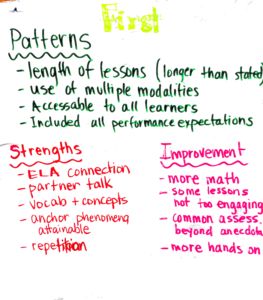 First
Patterns
- length of lessons (longer than stated)
- use of multiple modalities
- Accessable to all learners
- Included all performance expectations
Strengths
- ELA connection
- partner talk
- vocab + concepts
- anchor phenomena
attainable
- repetition
Improvement
- more math
- some lessons
not too engaging
- common assess.
beyond anecdot
- more hands on